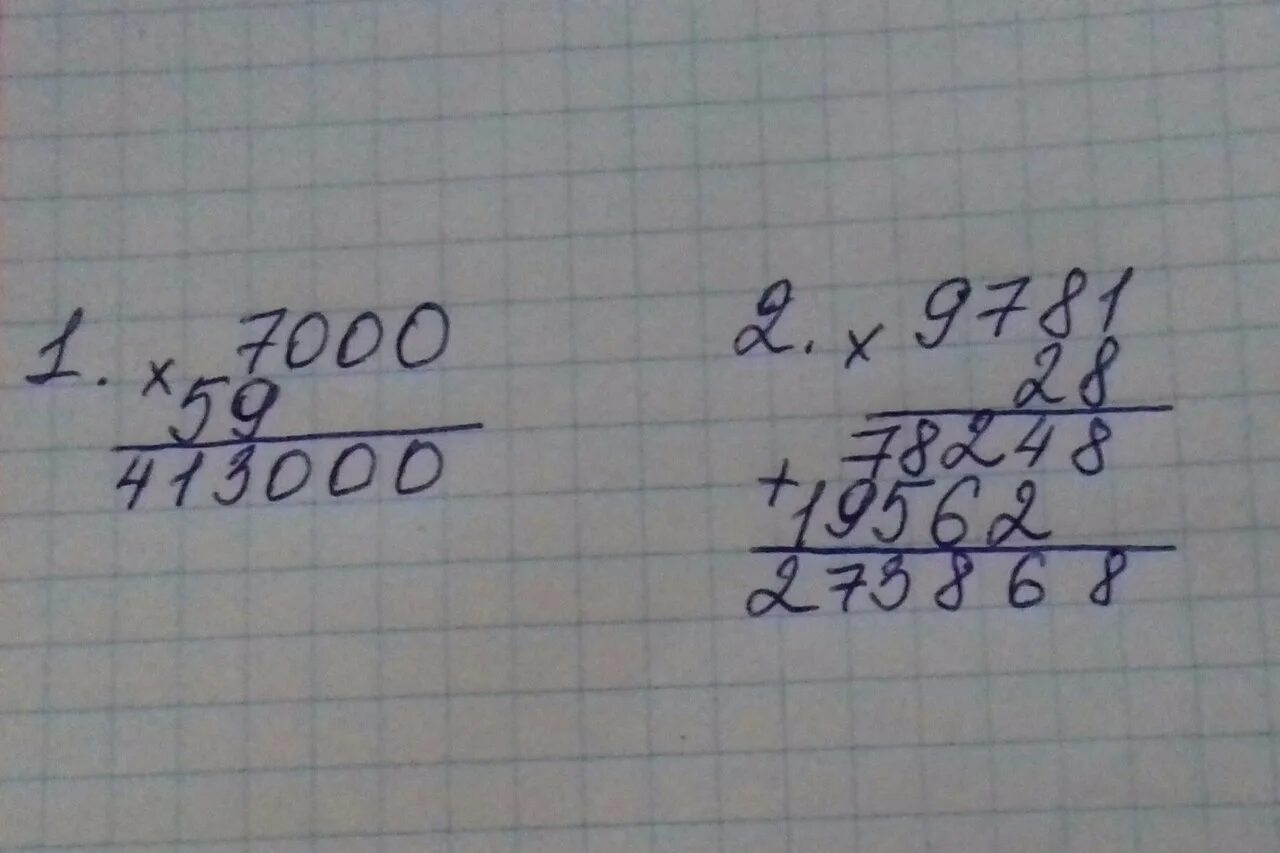 1. × 7000
59
413000
2. × 9781
28
78248
+ 19562
273868